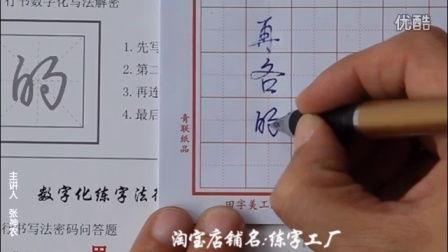 行书数字化写法解密
优酷
1.先写
2.第二
3.再连
4.最后
的
再
各
的
青联纸品
田字美工
主讲人 张神农
数字化练字法
行书写法密码问答题
淘宝店铺名:练字工厂